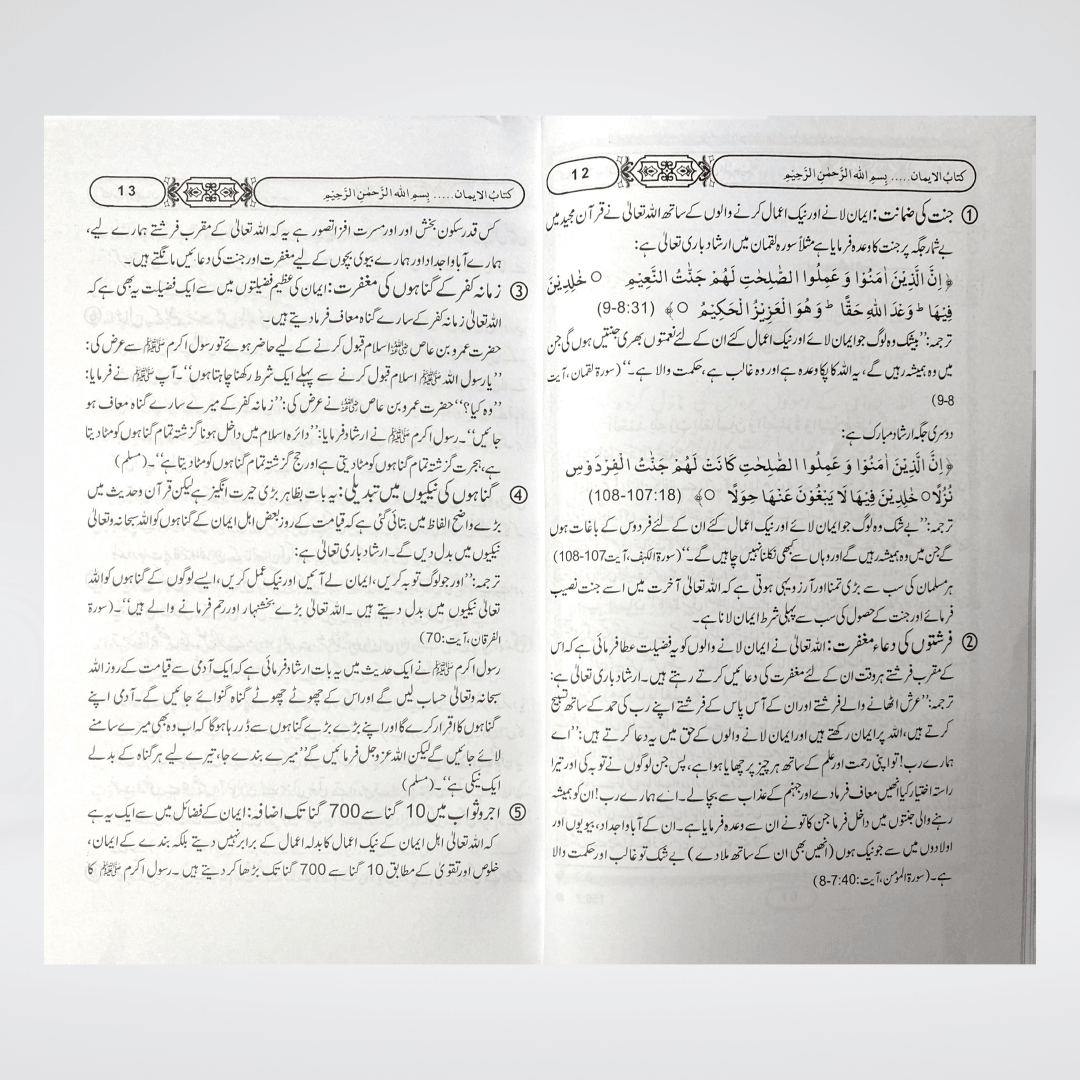 کتاب الایمان..... بِسمِ اللهِ الرَّحمٰنِ الرَّحِیمِ
12
① جنت کی ضمانت: ایمان لانے اور نیک اعمال کرنے والوں کے ساتھ اللہ تعالیٰ نے قرآن مجید میں
بے شمار جگہ پر جنت کا وعدہ فرمایا ہے مثلاً سورہ لقمان میں ارشاد باری تعالیٰ ہے:
﴿اِنَّ الَّذِیْنَ اٰمَنُوْا وَ عَمِلُوا الصّٰلِحٰتِ لَهُمْ جَنّٰتُ النَّعِیْمِ ○ خٰلِدِیْنَ
فِیْهَا ؕ وَعْدَ اللّٰهِ حَقًّا ؕ وَهُوَ الْعَزِیْزُ الْحَكِیْمُ ○﴾ (9-8:31)
ترجمہ: ”بیشک وہ لوگ جو ایمان لائے اور نیک اعمال کئے ان کے لئے نعمتوں بھری جنتیں ہوں گی جن
میں وہ ہمیشہ رہیں گے، یہ اللہ کا پکا وعدہ ہے اور وہ غالب ہے، حکمت والا ہے۔“ (سورۃ لقمان، آیت
9-8)
دوسری جگہ ارشاد مبارک ہے:
﴿اِنَّ الَّذِیْنَ اٰمَنُوْا وَ عَمِلُوا الصّٰلِحٰتِ كَانَتْ لَهُمْ جَنّٰتُ الْفِرْدَوْسِ
نُزُلًا○ خٰلِدِیْنَ فِیْهَا لَا یَبْغُوْنَ عَنْهَا حِوَلًا ○﴾ (108-107:18)
ترجمہ: ”بے شک وہ لوگ جو ایمان لائے اور نیک اعمال کئے ان کے لئے فردوس کے باغات ہوں
گے جن میں وہ ہمیشہ رہیں گے اور وہاں سے کبھی نکلنا نہیں چاہیں گے۔“ (سورۃ الکہف، آیت 107-108)
ہر مسلمان کی سب سے بڑی تمنا اور آرزو یہی ہوتی ہے کہ اللہ تعالیٰ آخرت میں اسے جنت نصیب
فرمائے اور جنت کے حصول کی سب سے پہلی شرط ایمان لانا ہے۔
② فرشتوں کی دعاء مغفرت: اللہ تعالیٰ نے ایمان لانے والوں کو یہ فضیلت عطا فرمائی ہے کہ اس
کے مقرب فرشتے ہر وقت ان کے لئے مغفرت کی دعائیں کرتے رہتے ہیں۔ ارشاد باری تعالیٰ ہے:
ترجمہ: ”عرش اٹھانے والے فرشتے اور ان کے آس پاس کے فرشتے اپنے رب کی حمد کے ساتھ تسبیح
کرتے ہیں، اللہ پر ایمان رکھتے ہیں اور ایمان لانے والوں کے حق میں یہ دعا کرتے ہیں: ”اے
ہمارے رب! تو اپنی رحمت اور علم کے ساتھ ہر چیز پر چھایا ہوا ہے، پس جن لوگوں نے توبہ کی اور تیرا
راستہ اختیار کیا انھیں معاف فرما دے اور جہنم کے عذاب سے بچالے۔ اے ہمارے رب! ان کو ہمیشہ
رہنے والی جنتوں میں داخل فرما جن کا تو نے ان سے وعدہ فرمایا ہے۔ ان کے آباو اجداد، بیویوں اور
اولادوں میں سے جو نیک ہوں (انھیں بھی ان کے ساتھ ملا دے) بے شک تو غالب اور حکمت والا
ہے۔ (سورۃ المؤمن، آیت: 7:40-8)
کتاب الایمان..... بِسمِ اللهِ الرَّحمٰنِ الرَّحِیمِ
13
کس قدر سکون بخش اور اور مسرت افزا تصور ہے یہ کہ اللہ تعالیٰ کے مقرب فرشتے ہمارے لیے،
ہمارے آباو اجداد اور ہمارے بیوی بچوں کے لیے مغفرت اور جنت کی دعائیں مانگتے ہیں۔
③ زمانہ کفر کے گناہوں کی مغفرت: ایمان کی عظیم فضیلتوں میں سے ایک فضیلت یہ بھی ہے کہ
اللہ تعالیٰ زمانہ کفر کے سارے گناہ معاف فرما دیتے ہیں۔
حضرت عمرو بن عاص رضی اللہ عنہ اسلام قبول کرنے کے لیے حاضر ہوئے تو رسول اکرم ﷺ سے عرض کی:
”یا رسول اللہ ﷺ اسلام قبول کرنے سے پہلے ایک شرط رکھنا چاہتا ہوں“۔ آپ ﷺ نے فرمایا:
”وہ کیا؟“ حضرت عمرو بن عاص رضی اللہ عنہ نے عرض کی: ”زمانہ کفر کے میرے سارے گناہ معاف ہو
جائیں“۔ رسول اکرم ﷺ نے ارشاد فرمایا: ”دائرہ اسلام میں داخل ہونا گزشتہ تمام گناہوں کو مٹا دیتا
ہے، ہجرت گزشتہ تمام گناہوں کو مٹا دیتی ہے اور حج گزشتہ تمام گناہوں کو مٹا دیتا ہے“۔ (مسلم)
④ گناہوں کی نیکیوں میں تبدیلی: یہ بات بظاہر بڑی حیرت انگیز ہے لیکن قرآن و حدیث میں
بڑے واضح الفاظ میں بتائی گئی ہے کہ قیامت کے روز بعض اہل ایمان کے گناہوں کو اللہ سبحانہ وتعالیٰ
نیکیوں میں بدل دیں گے۔ ارشاد باری تعالیٰ ہے:
ترجمہ: ”اور جو لوگ توبہ کریں، ایمان لے آئیں اور نیک عمل کریں، ایسے لوگوں کے گناہوں کو اللہ
تعالیٰ نیکیوں میں بدل دیتے ہیں۔ اللہ تعالیٰ بڑے بخشنہار اور رحم فرمانے والے ہیں“۔ (سورۃ
الفرقان، آیت: 70)
رسول اکرم ﷺ نے ایک حدیث میں یہ بات ارشاد فرمائی ہے کہ ایک آدمی سے قیامت کے روز اللہ
سبحانہ وتعالیٰ حساب لیں گے اور اس کے چھوٹے چھوٹے گناہ گنوائے جائیں گے۔ آدمی اپنے
گناہوں کا اقرار کرے گا اور اپنے بڑے بڑے گناہوں سے ڈر رہا ہوگا کہ اب وہ بھی میرے سامنے
لائے جائیں گے لیکن اللہ عزوجل فرمائیں گے ”میرے بندے جا، تیرے لیے ہر گناہ کے بدلے
ایک نیکی ہے“۔ (مسلم)
⑤ اجر و ثواب میں 10 گنا سے 700 گنا تک اضافہ: ایمان کے فضائل میں سے ایک یہ ہے
کہ اللہ تعالیٰ اہل ایمان کے نیک اعمال کا بدلہ اعمال کے برابر نہیں دیتے بلکہ بندے کے ایمان،
خلوص اور تقویٰ کے مطابق 10 گنا سے 700 گنا تک بڑھا کر دیتے ہیں۔ رسول اکرم ﷺ کا